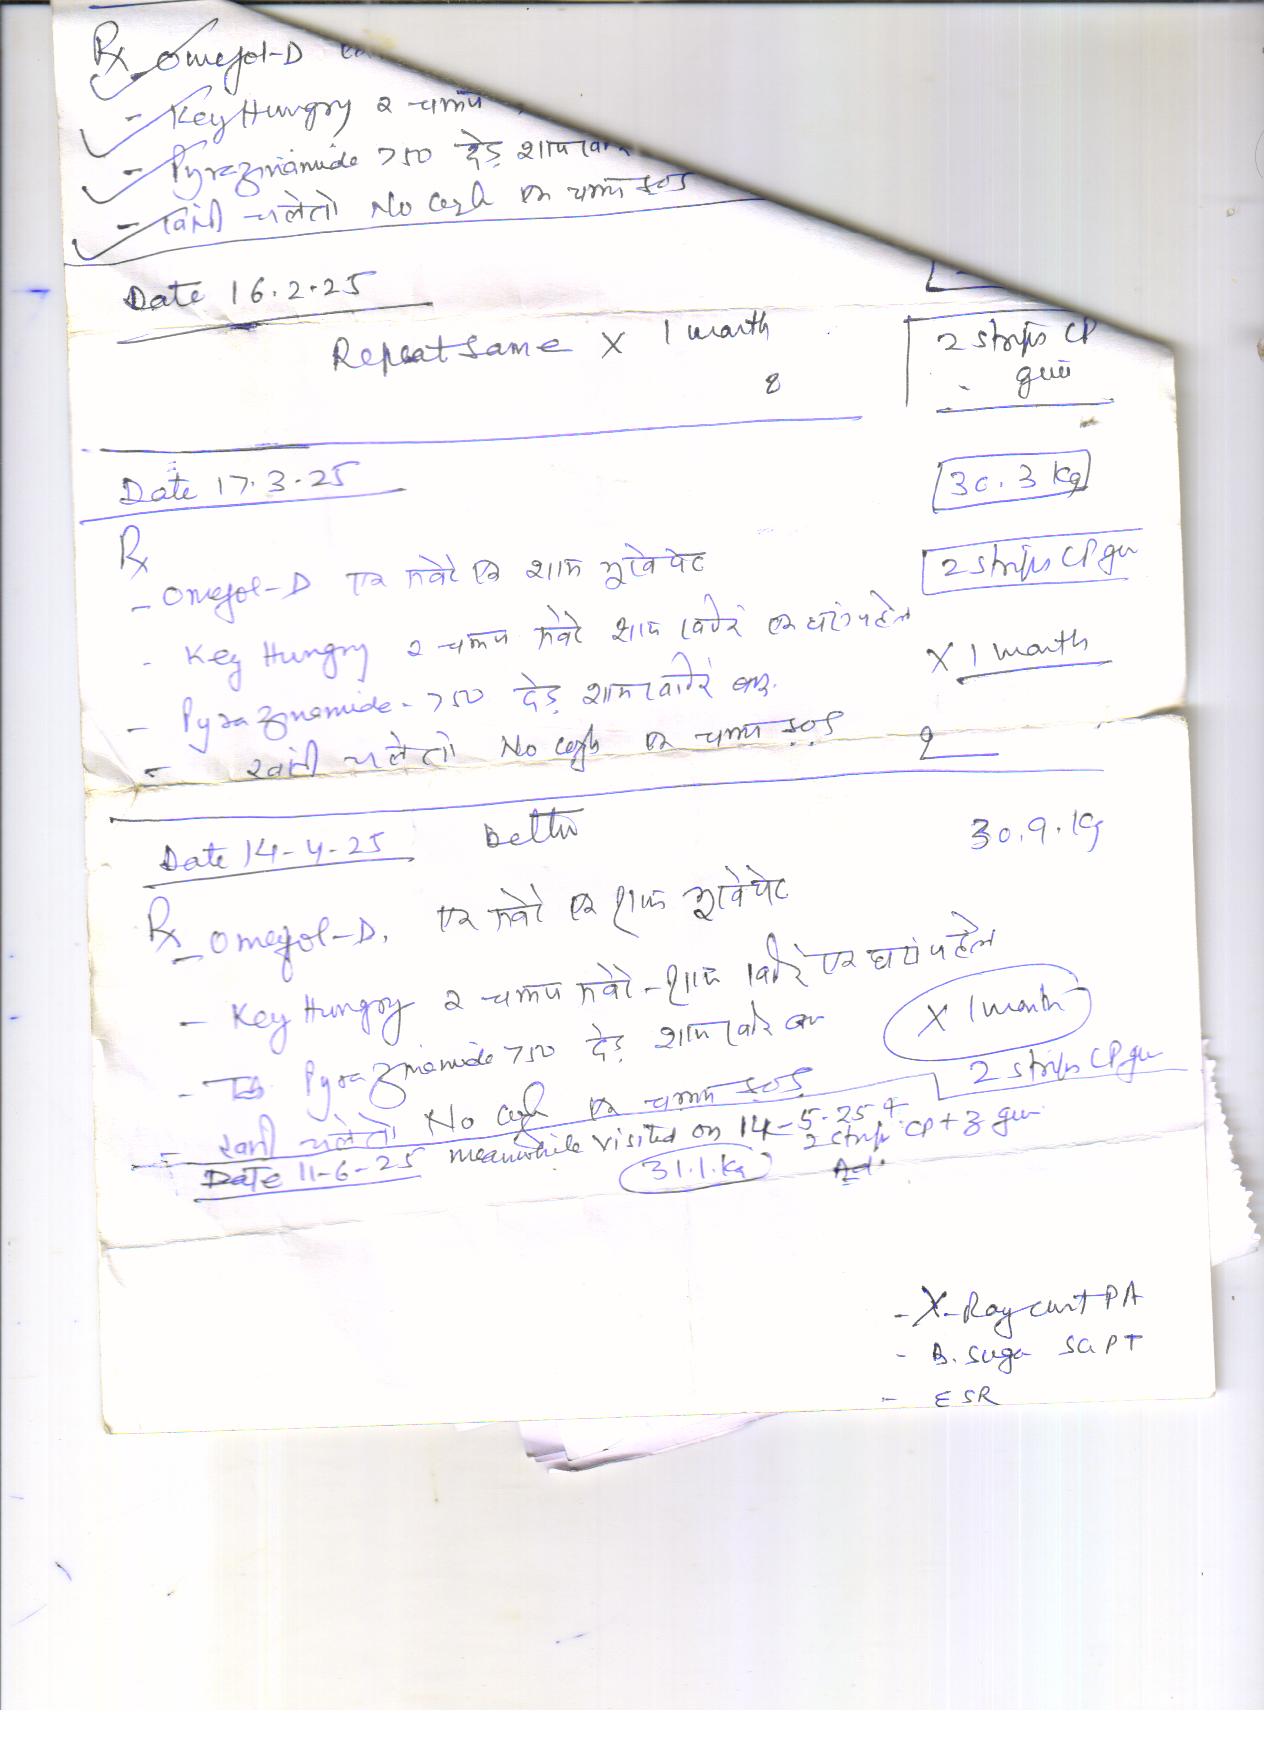 Rx Omejol-D
- Key Hungry 2 चम्मच
- Pyrazinamide 750 देड़ शाम
- खांसी चलेतो No cogh एक चम्मच SOS
Date 16.2.25
Repeat same X 1 month
2 strips CP
Date 17.3.25
30.3 kg
Rx
- Omejol-D एक सवेरे एक शाम भूखे पेट
2 strips CP
- Key Hungry 2 चम्मच सवेरे शाम एक घंटा पहले
X 1 month
- Pyrazinamide - 750 देड़ शाम
- खांसी चलेतो No cogh एक चम्मच SOS
Date 14-4-25
30.9.kg
Rx - Omejol-D, एक सवेरे एक शाम भूखे पेट
- Key Hungry 2 चम्मच सवेरे - शाम एक घंटा पहले
X 1 month
- Pyrazinamide 750 देड़ शाम
2 strips CP
- खांसी चलेतो No cogh एक चम्मच SOS
Date 11-6-25 meanwhile visited on 14-5-25
2 strips CP + 3
31.1.kg
Ad.
- X-Ray chest PA
- B. Sugar
- ESR